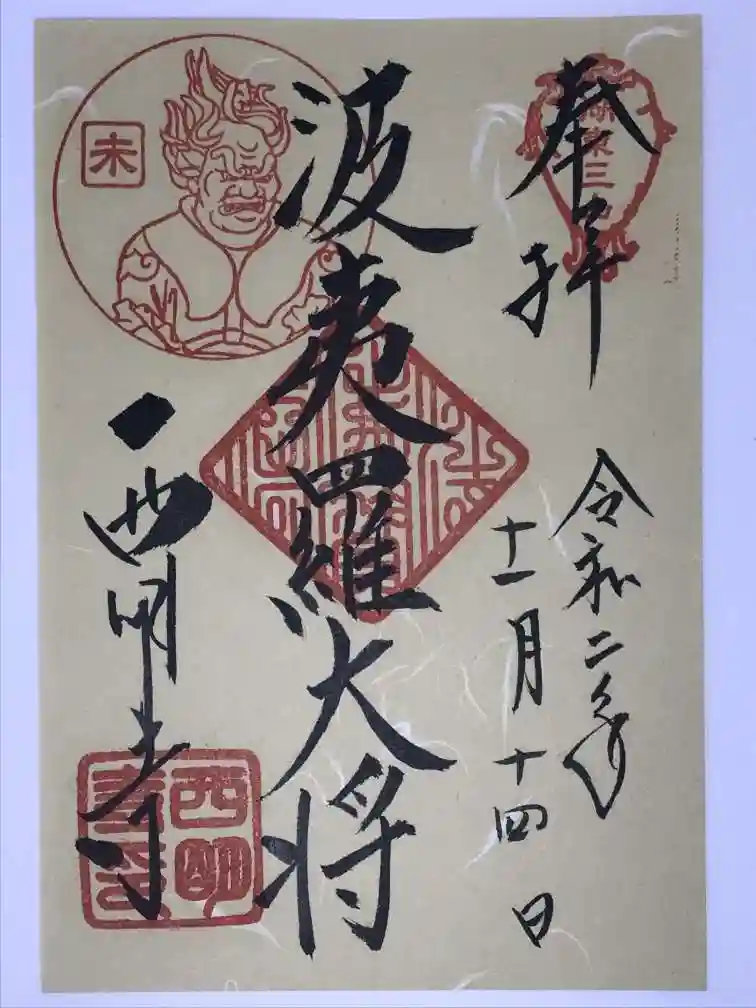 奉拝
令和二年
十一月十四日
波夷羅大将
西明寺
未
西明寺